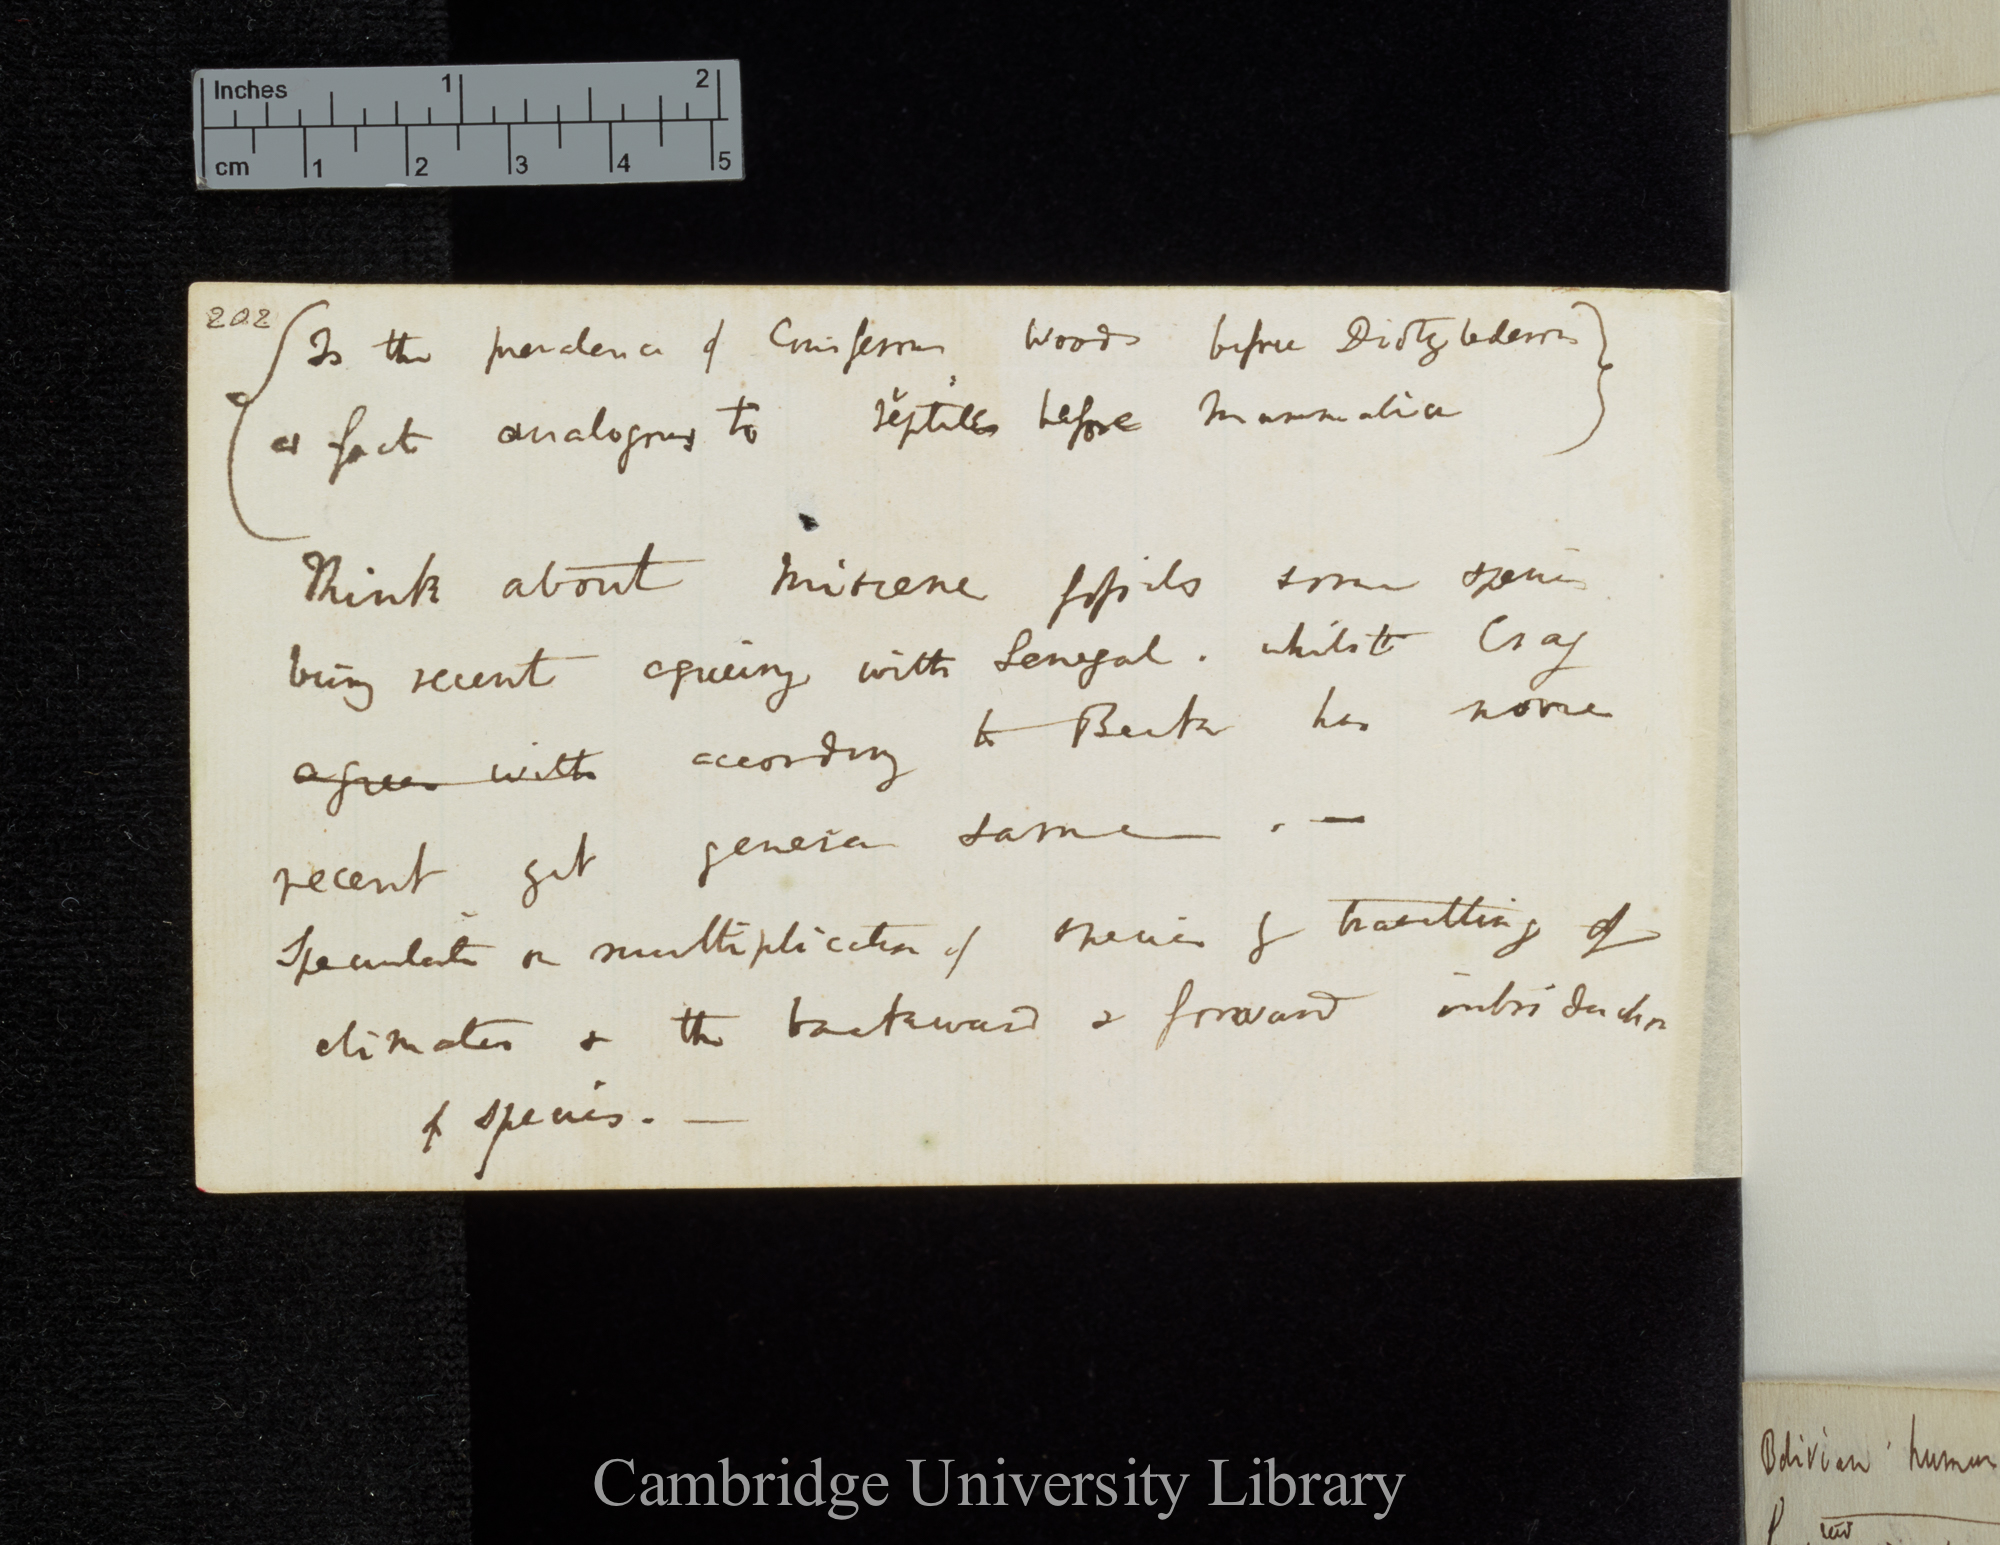 Inches 1 2
cm 1 2 3 4 5
202
Is the prevalence of Coniferous Woods before Dicotyledenous
a fact analogous to reptiles before mammalia
Think about miocene fossils some species
being recent agreeing with Senegal. whilst Crag
agrees with according to Beck has none
recent yet genera same . —
Speculate on multiplication of species by travelling of
climates & the backward & forward introduction
of species. —
Bolivian human
Cambridge University Library